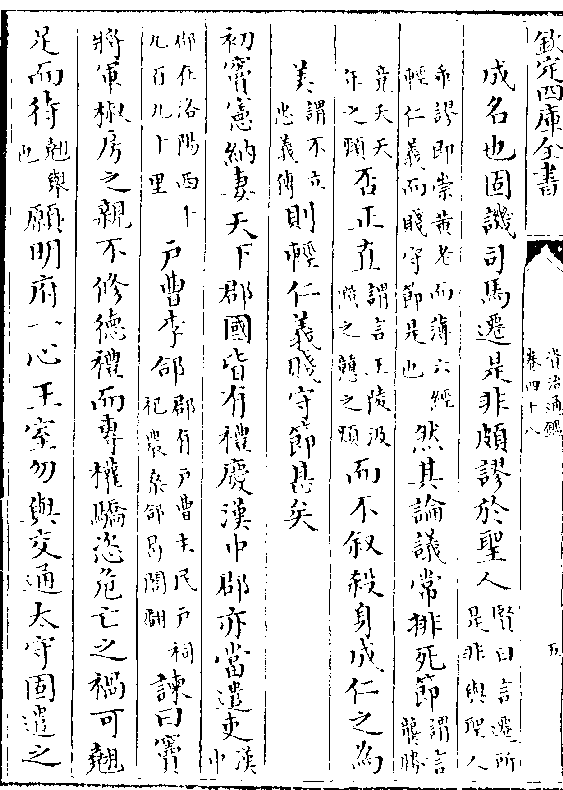 欽定四庫全書
資治通鑑
卷四十八
五
成名也固譏司馬遷是非頗謬於聖人賢曰言遷所是非與聖人
乖謬即崇黄老而薄六經輕仁義而賤守節是也然其論議常排死節謂言龔勝
竟夭天年之類否正直謂言王陵汲黯之戇之類而不叙殺身成仁之為
美謂不立忠義傳則輕仁義賤守節甚矣
初竇憲納妻天下郡國皆有禮慶漢中郡亦當遣吏漢中
郡在洛陽西十九百九十里戶曹李郃郡有戶曹主民戶祠祀農桑郃曷閤翻諫曰竇
將軍椒房之親不修德禮而專權驕恣危亡之禍可翹
足而待翹舉也願明府一心王室勿與交通太守固遣之